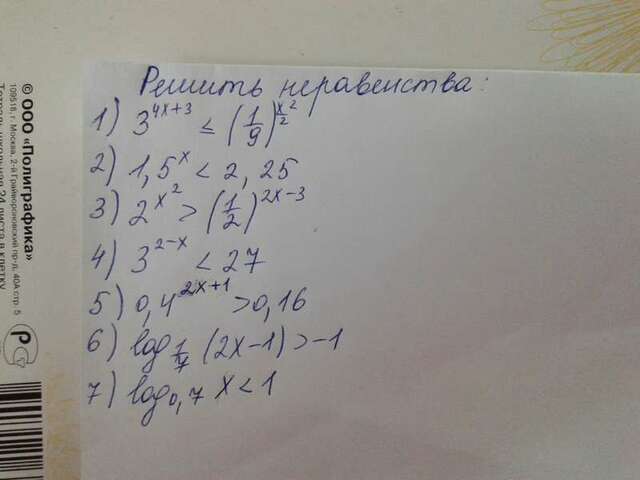 Решить неравенства:
1) 3^{4x+3} ≤ (1/9)^{x²/2}
2) 1,5^x < 2,25
3) 2^{x²} > (1/2)^{2x-3}
4) 3^{2-x} < 27
5) 0,4^{2x+1} > 0,16
6) log_{1/7} (2x-1) > -1
7) log_{0,7} x < 1
© ООО «Полиграфика»
109518, г. Москва, 2-й Грайвороновский пр-д, 40А стр. 5
Тетрадь школьная 24 листа в клетку
Р